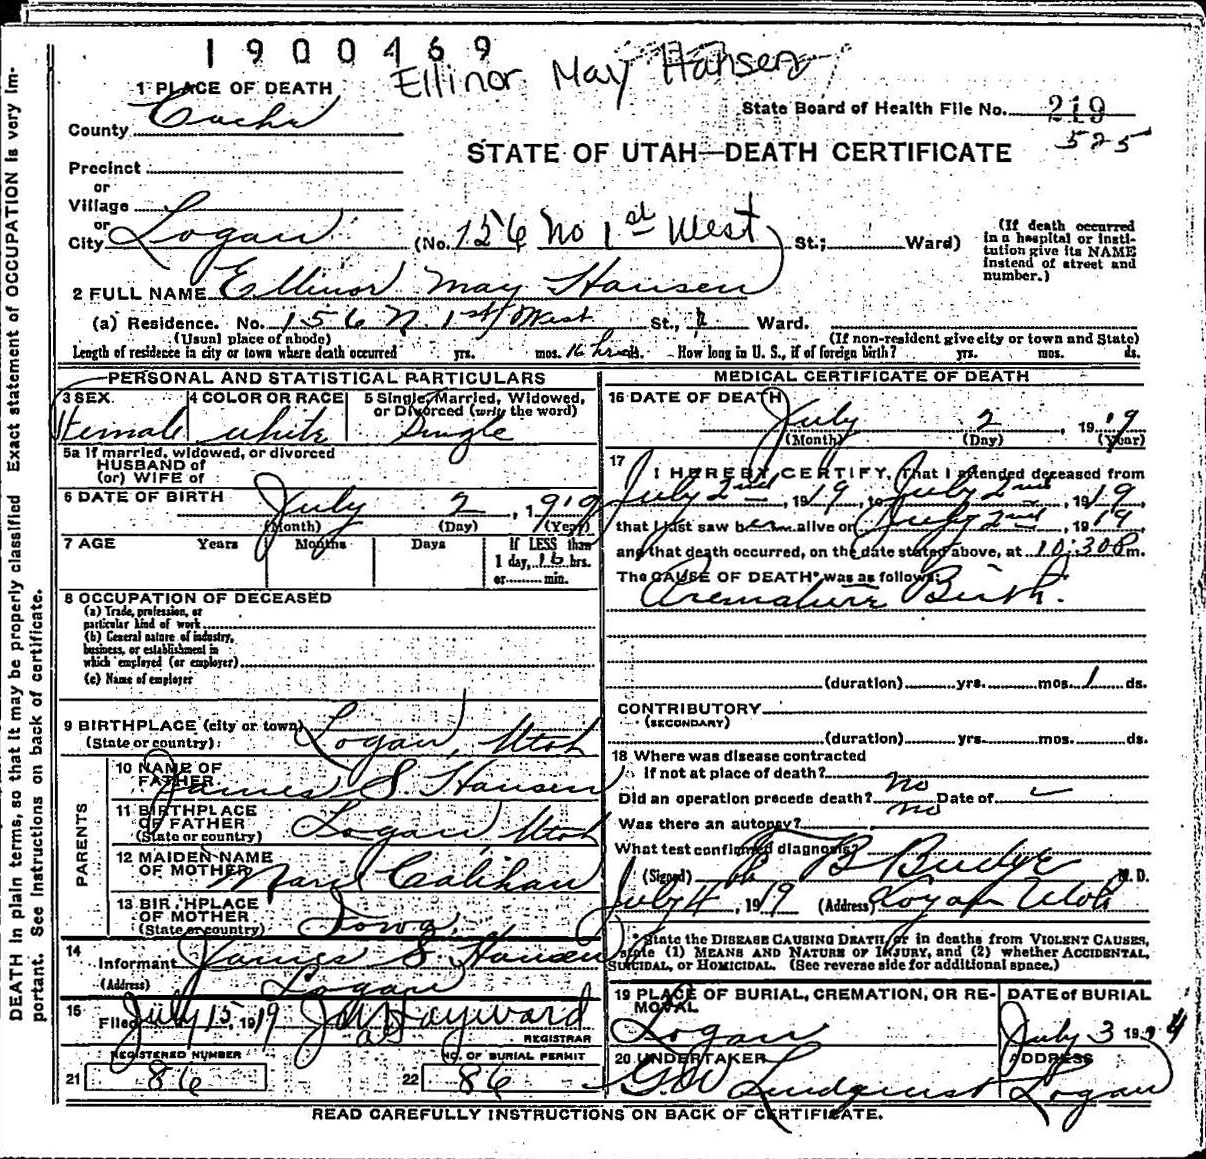 1900469
Ellinor May Hansen
1 PLACE OF DEATH
County Cache
State Board of Health File No. 219
525
STATE OF UTAH—DEATH CERTIFICATE
Precinct
or
Village
or
City Logan (No. 156 No 1st West St.; Ward)
(If death occurred in a hospital or institution give its NAME instead of street and number.)
2 FULL NAME Ellinor May Hansen
(a) Residence. No. 156 N. 1st West St., Ward.
(Usual place of abode) (If non-resident give city or town and State)
Length of residence in city or town where death occurred yrs. mos. 16 hrs ds. How long in U. S., if of foreign birth? yrs. mos. ds.
PERSONAL AND STATISTICAL PARTICULARS
3 SEX Female
4 COLOR OR RACE white
5 Single, Married, Widowed, or Divorced (write the word) Single
5a If married, widowed, or divorced
HUSBAND of
(or) WIFE of
6 DATE OF BIRTH July 2, 1919
(Month) (Day) (Year)
7 AGE Years Months Days If LESS than
1 day, 16 hrs.
or min.
8 OCCUPATION OF DECEASED
(a) Trade, profession, or
particular kind of work
(b) General nature of industry,
business, or establishment in
which employed (or employer)
(c) Name of employer
9 BIRTHPLACE (city or town) Logan, Utah
(State or country)
PARENTS
10 NAME OF FATHER James S. Hansen
11 BIRTHPLACE OF FATHER Logan, Utah
(State or country)
12 MAIDEN NAME OF MOTHER Calihan
13 BIRTHPLACE OF MOTHER Iowa
(State or country)
14 Informant James S. Hansen
(Address) Logan
15 Filed July 15, 1919 Hayward
REGISTRAR
REGISTERED NUMBER NO. OF BURIAL PERMIT
21 86 22 86
MEDICAL CERTIFICATE OF DEATH
16 DATE OF DEATH July 2, 1919
(Month) (Day) (Year)
17 I HEREBY CERTIFY, That I attended deceased from
July 2nd, 1919, to July 2nd, 1919,
that I last saw her alive on July 2nd, 1919
and that death occurred, on the date stated above, at 10:30 P m.
The CAUSE OF DEATH* was as follows:
Premature Birth.
(duration) yrs. mos. 1 ds.
CONTRIBUTORY
(SECONDARY)
(duration) yrs. mos. ds.
18 Where was disease contracted
If not at place of death?
Did an operation precede death? no Date of
Was there an autopsy? no
What test confirmed diagnosis?
(Signed) B Budge M. D.
July 4, 1919 (Address) Logan Utah
*State the DISEASE CAUSING DEATH, or in deaths from VIOLENT CAUSES,
state (1) MEANS AND NATURE OF INJURY, and (2) whether ACCIDENTAL,
SUICIDAL, or HOMICIDAL. (See reverse side for additional space.)
19 PLACE OF BURIAL, CREMATION, OR REMOVAL Logan
DATE of BURIAL July 3 19
20 UNDERTAKER G.W. Lindquist
ADDRESS Logan
READ CAREFULLY INSTRUCTIONS ON BACK OF CERTIFICATE.
DEATH in plain terms, so that it may be properly classified Exact statement of OCCUPATION is very im-
portant. See instructions on back of certificate.